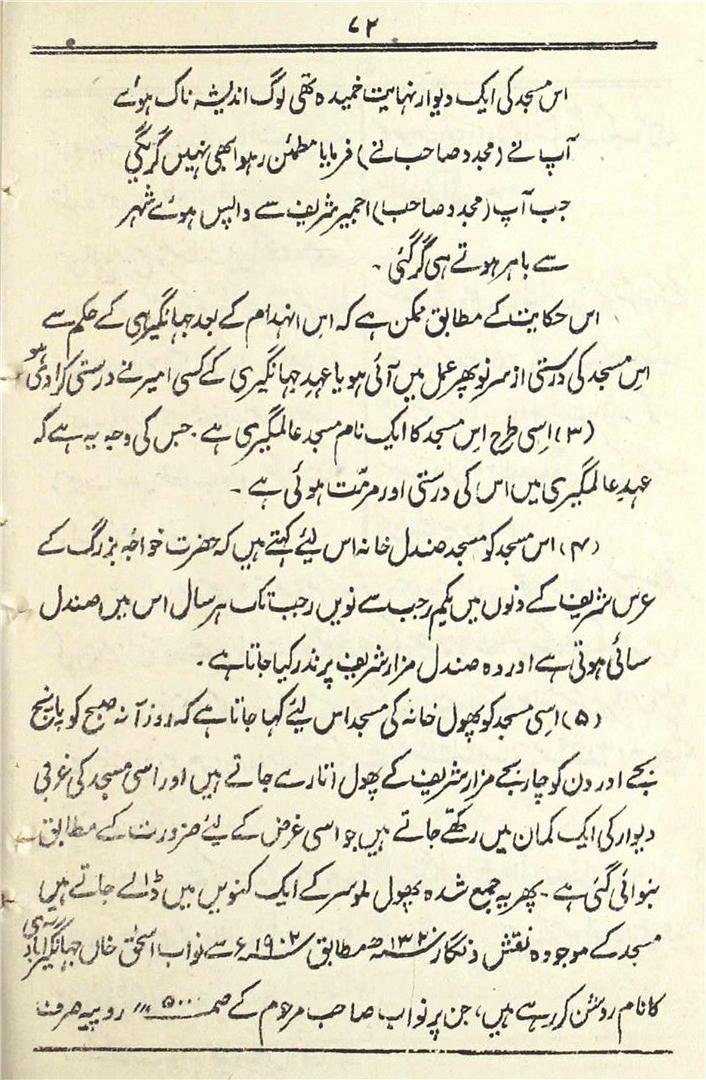 ۷۲
اس مسجد کی ایک دیوار نہایت خمیدہ تھی لوگ اندیشہ ناک ہوئے
آپ نے (مجدد صاحب نے) فرمایا مطمئن رہو ابھی نہیں گریگی
جب آپ (مجدد صاحب) اجمیر شریف سے واپس ہوئے شہر
سے باہر ہوتے ہی گر گئی ۔
اس حکایت کے مطابق ممکن ہے کہ اس انہدام کے بعد جہانگیر ہی کے حکم سے
اس مسجد کی درستی از سر نو پھر عمل میں آئی ہو یا عہد جہانگیری کے کسی امیر نے درستی کرا دی ہو
(۳) اسی طرح اس مسجد کا ایک نام مسجد عالمگیری ہے ۔ جس کی وجہ یہ ہے کہ
عہدِ عالمگیری میں اس کی درستی اور مرمّت ہوئی ہے ۔
(۴) اس مسجد کو مسجد صندل خانہ اس لیئے کہتے ہیں کہ حضرت خواجۂ بزرگ کے
عرس شریف کے دنوں میں یکم رجب سے نویں رجب تک ہر سال اس میں صندل
سائی ہوتی ہے اور وہ صندل مزار شریف پر نذر کیا جاتا ہے ۔
(۵) اسی مسجد کو پھول خانہ کی مسجد اس لیئے کہا جاتا ہے کہ روزآنہ صبح کو پانچ
بجے اور دن کو چار بجے مزار شریف کے پھول اتارے جاتے ہیں اور اسی مسجد کی غربی
دیوار کی ایک کمان میں رکھے جاتے ہیں جو اسی غرض کے لیئے ضرورت کے مطابق
بنوائی گئی ہے ۔ پھر یہ جمع شدہ پھول ملوسر کے ایک کنویں میں ڈالے جاتے ہیں
مسجد کے موجودہ نقش و نگار ۱۳۲۰ھ مطابق ۱۹۰۲ء سے نواب اسحٰق خاں جہانگیرآبادی
کا نام روشن کر رہے ہیں، جن پر نواب صاحب مرحوم کے ۵۰۰۰ روپیہ صرف